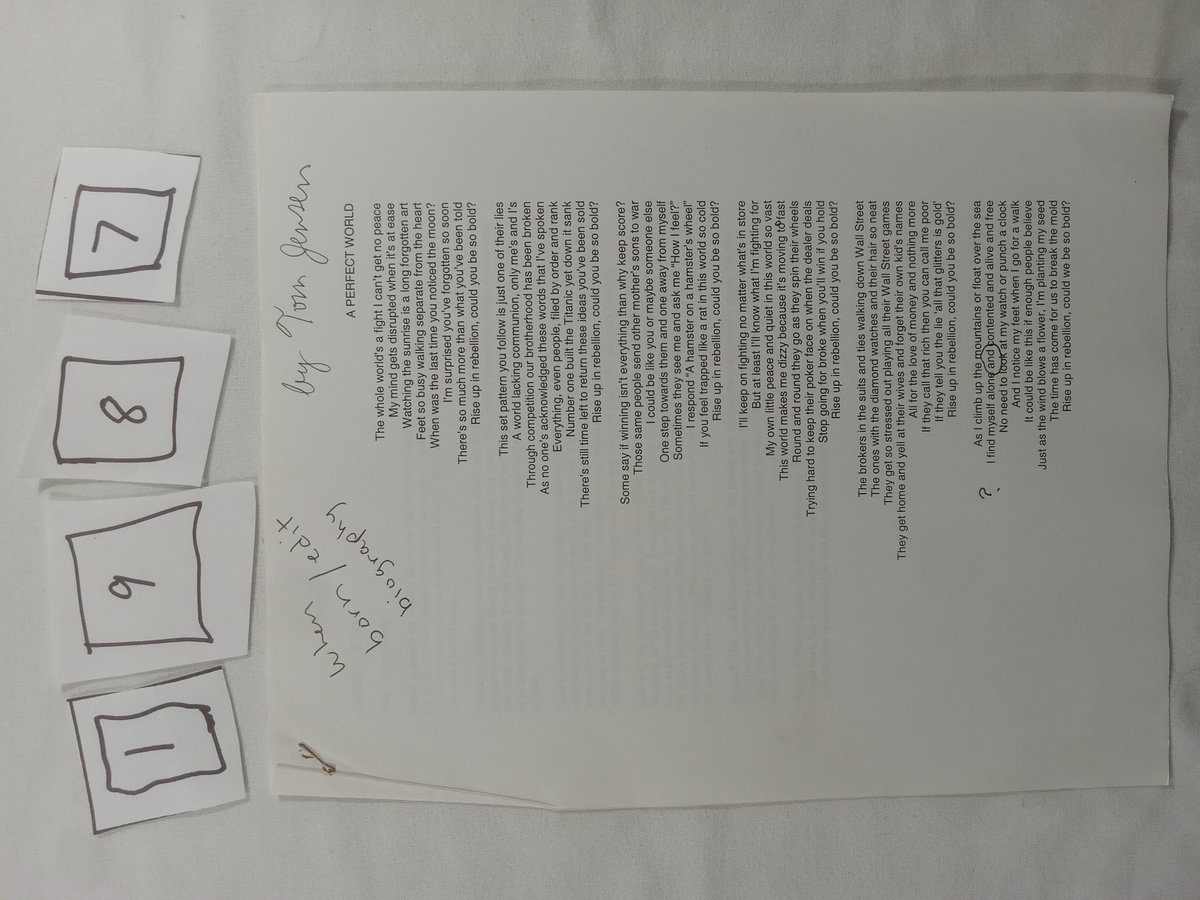 1 9 8 7
by Tom Jensen
When
born / edit
biography
A PERFECT WORLD
The whole world's a fight I can't get no peace
My mind gets disrupted when it's at ease
Watching the sunrise is a long forgotten art
Feet so busy walking separate from the heart
When was the last time you noticed the moon?
I'm surprised you've forgotten so soon
There's so much more than what you've been told
Rise up in rebellion, could you be so bold?
This set pattern you follow is just one of their lies
A world lacking communion, only me's and I's
Through competition our brotherhood has been broken
As no one's acknowledged these words that I've spoken
Everything, even people, filed by order and rank
Number one built the Titanic yet down it sank
There's still time left to return these ideas you've been sold
Rise up in rebellion, could you be so bold?
Some say if winning isn't everything than why keep score?
Those same people send other mother's sons to war
I could be like you or maybe someone else
One step towards them and one away from myself
Sometimes they see me and ask me "How I feel?"
I respond "A hamster on a hamster's wheel"
If you feel trapped like a rat in this world so cold
Rise up in rebellion, could you be so bold?
I'll keep on fighting no matter what's in store
But at least I'll know what I'm fighting for
My own little peace and quiet in this world so vast
This world makes me dizzy because it's moving to fast
Round and round they go as they spin their wheels
Trying hard to keep their poker face on when the dealer deals
Stop going for broke when you'll win if you hold
Rise up in rebellion, could you be so bold?
The brokers in the suits and ties walking down Wall Street
The ones with the diamond watches and their hair so neat
They get so stressed out playing all their Wall Street games
They get home and yell at their wives and forget their own kid's names
All for the love of money and nothing more
If they call that rich then you can call me poor
If they tell you the lie all that glitters is gold
Rise up in rebellion, could you be so bold?
As I climb up the mountains or float over the sea
? I find myself alone and contented and alive and free
No need to look at my watch or punch a clock
And I notice my feet when I go for a walk
It could be like this if enough people believe
Just as the wind blows a flower, I'm planting my seed
The time has come for us to break the mold
Rise up in rebellion, could we be so bold?